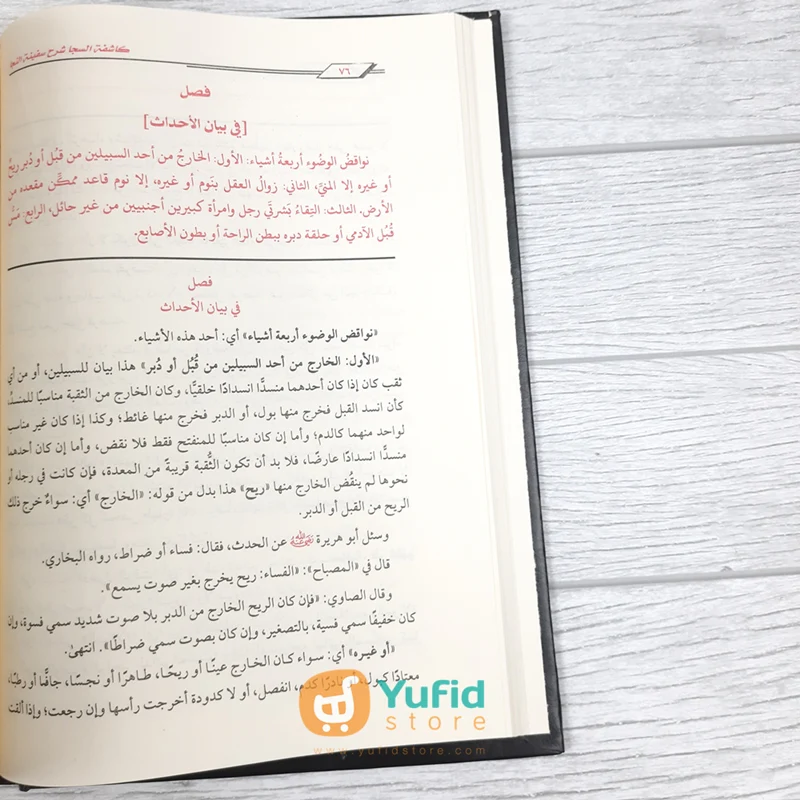 كاشفة السجا شرح سفينة النجا
٧٦
فصل
[في بيان الأحداث]
نواقضُ الوضُوء أربعةُ أشياء: الأول: الخارجُ من أحد السبيلين من قُبُل أو دُبر ريحٌ
أو غيره إلا المنيَّ، الثاني: زوالُ العقل بنَوم أو غيره، إلا نوم قاعد ممكِّن مقعده من
الأرض. الثالث: التِقاءُ بَشرتَي رجل وامرأة كبيرين أجنبيين من غير حائل، الرابع: مَسُّ
قُبُل الآدمي أو حلقة دبره ببطن الراحة أو بطون الأصابع.
فصل
في بيان الأحداث
«نواقض الوضوء أربعة أشياء» أي: أحد هذه الأشياء.
«الأول: الخارج من أحد السبيلين من قُبُل أو دُبر» هذا بيان للسبيلين، أو من أي
ثقب كان إذا كان أحدهما منسدًّا انسدادًا خلقيًّا، وكان الخارج من الثقبة مناسبًا للمنسدِّ
كأن انسد القبل فخرج منها بول، أو الدبر فخرج منها غائط؛ وكذا إذا كان غير مناسب
لواحد منهما كالدم؛ وأما إن كان مناسبًا للمنفتح فقط فلا نقض، وأما إن كان أحدهما
منسدًّا انسدادًا عارضًا، فلا بد أن تكون الثُّقبة قريبةً من المعدة، فإن كانت في رجله أو
نحوها لم ينقُض الخارج منها «ريح» هذا بدل من قوله: «الخارج» أي: سواءٌ خرج ذلك
الريح من القبل أو الدبر.
وسئل أبو هريرة رضي الله عنه عن الحدث، فقال: فساء أو ضراط، رواه البخاري.
قال في «المصباح»: «الفساء: ريح يخرج بغير صوت يسمع».
وقال الصاوي: «فإن كان الريح الخارج من الدبر بلا صوت شديد سمي فسوة، وإن
كان خفيفًا سمي فسية، بالتصغير، وإن كان بصوت سمي ضراطًا». انتهىٰ.
«أو غيره» أي: سواء كان الخارج عينًا أو ريحًا، طاهرًا أو نجسًا، جافًّا أو رطبًا،
معتادًا كبول، أو نادرًا كدم، انفصل، أو لا كدودة أخرجت رأسها وإن رجعت؛ وإذا ألقت
Yufid
store
www.yufidstore.com